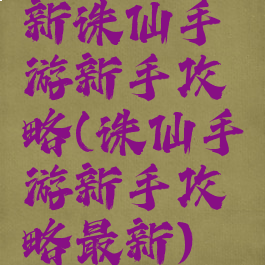 新诛仙手
游新手攻
略(诛仙手
游新手攻
略最新)